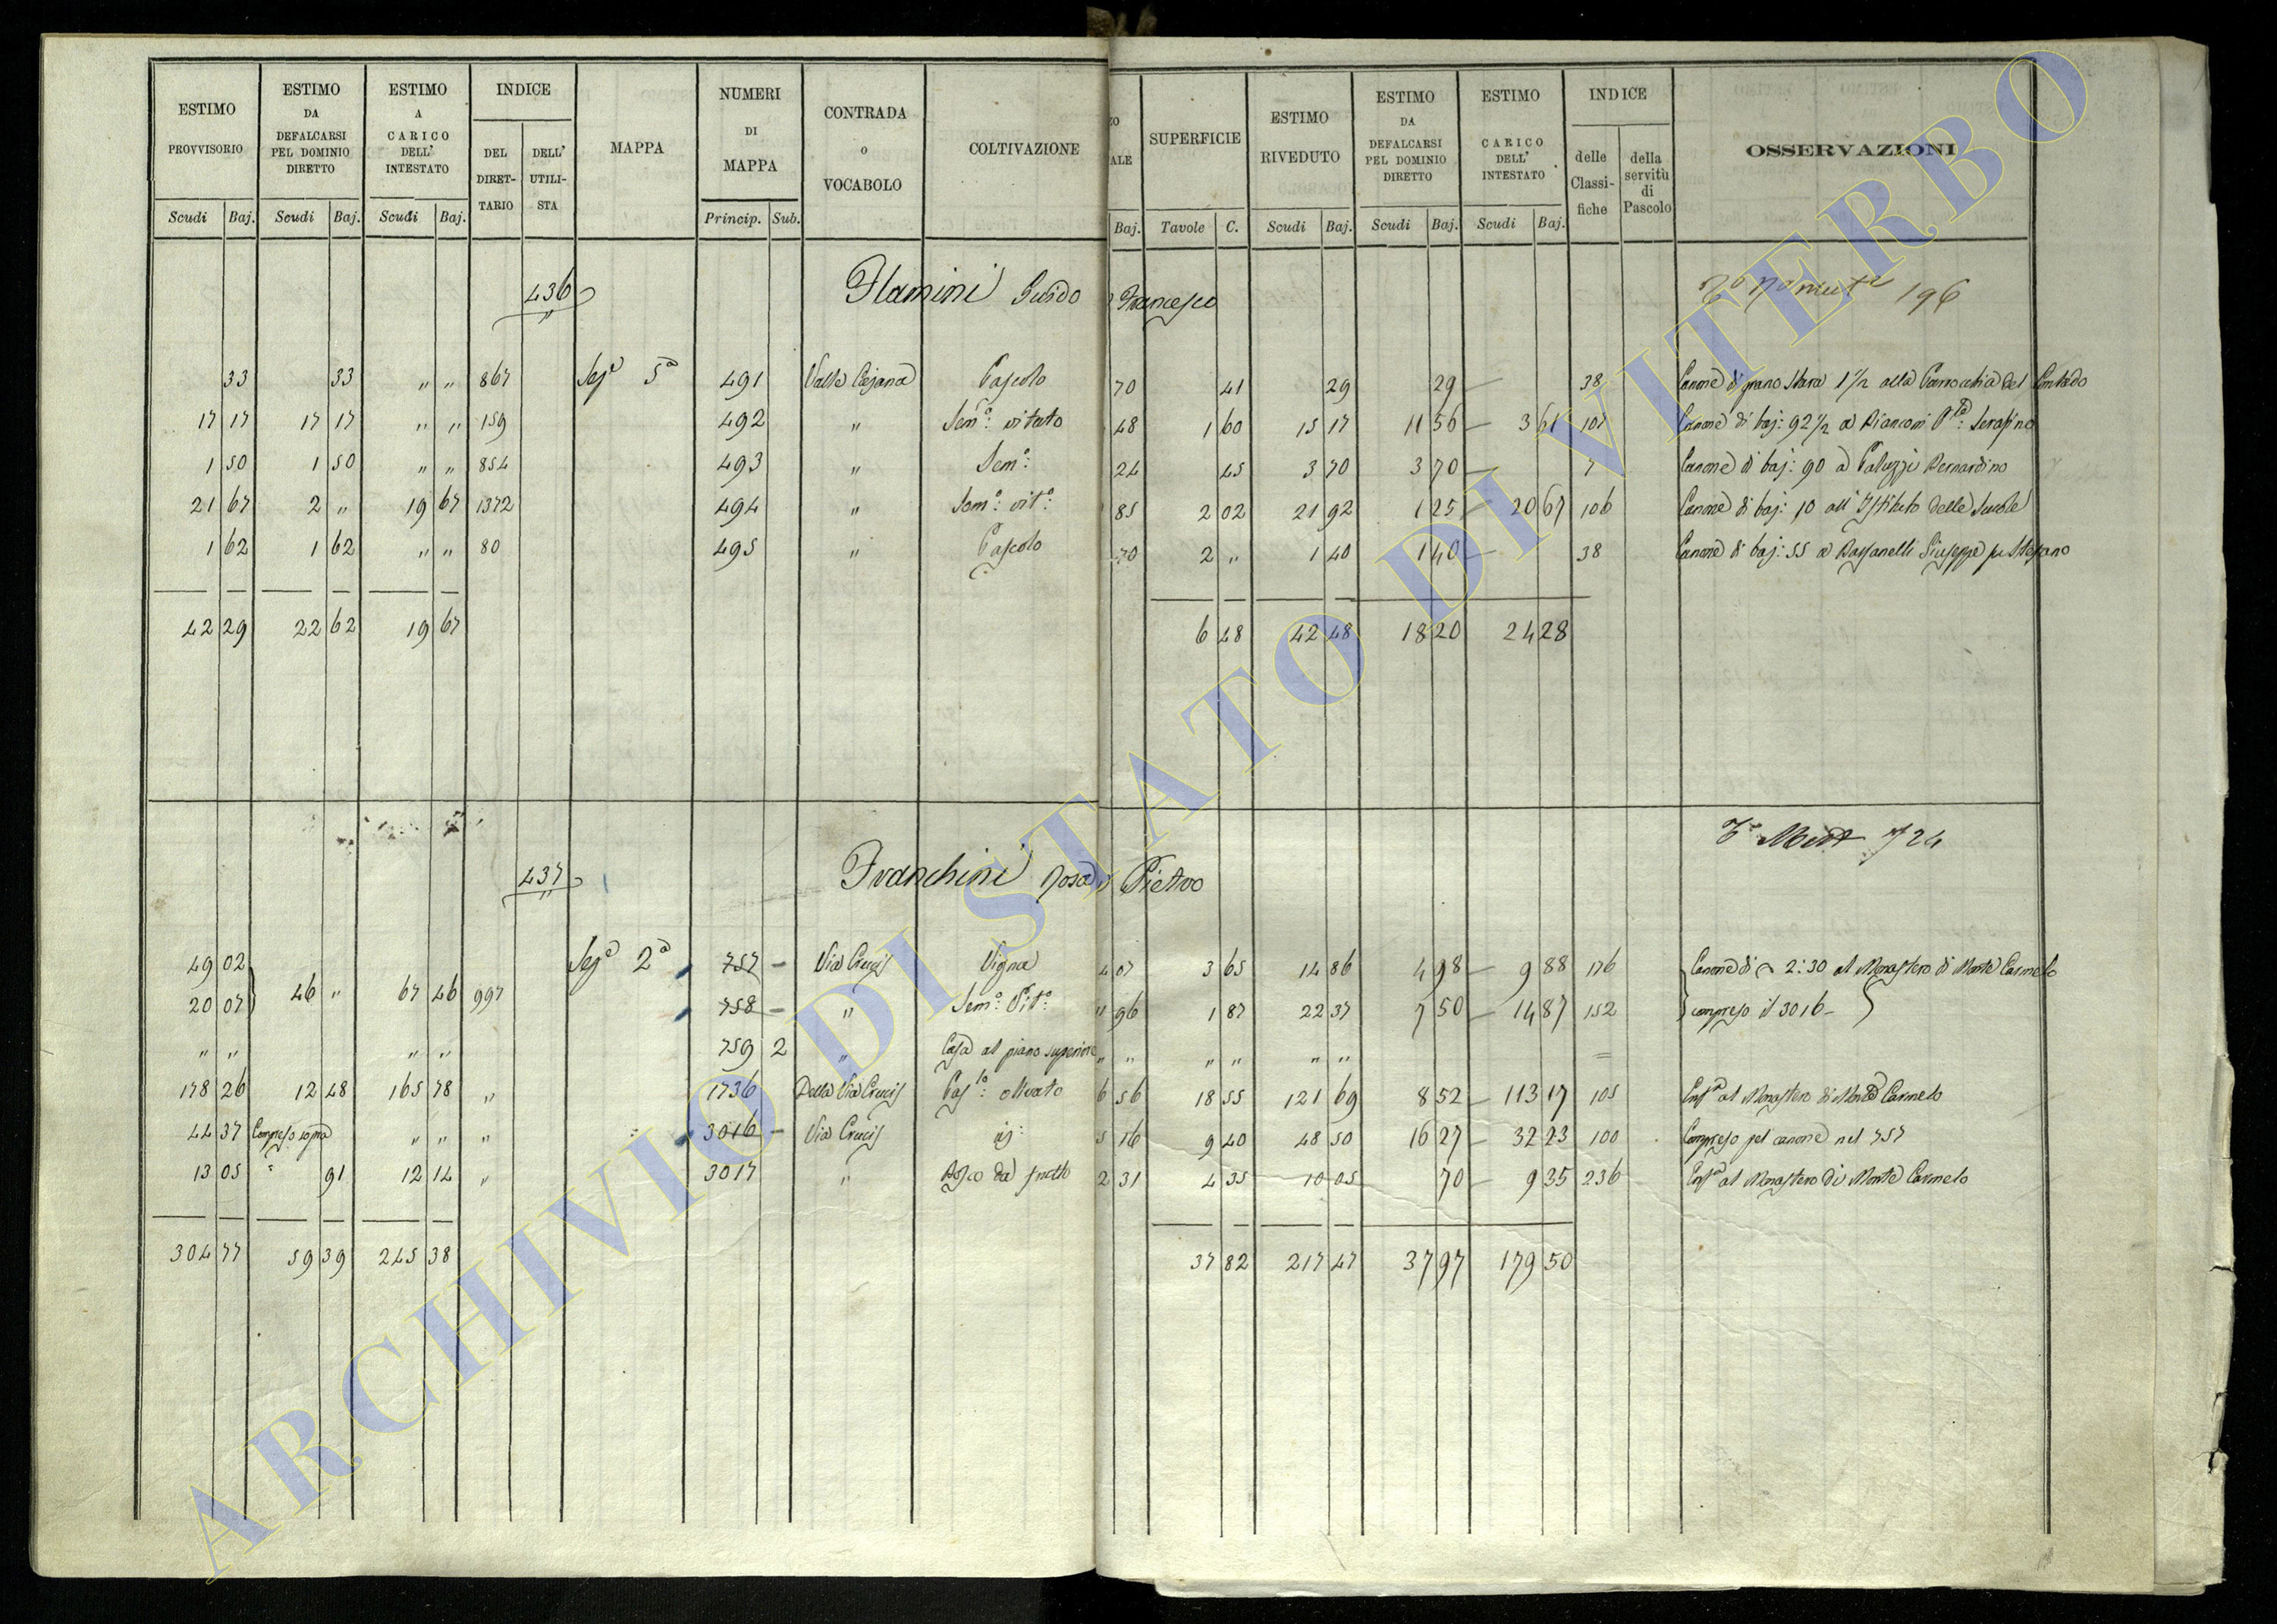 ESTIMO PROVVISORIO | ESTIMO DA DEFALCARSI PEL DOMINIO DIRETTO | ESTIMO A CARICO DELL' INTESTATO | INDICE | MAPPA | NUMERI DI MAPPA | CONTRADA O VOCABOLO | COLTIVAZIONE | ZO ALE | SUPERFICIE | ESTIMO RIVEDUTO | ESTIMO DA DEFALCARSI PEL DOMINIO DIRETTO | ESTIMO CARICO DELL' INTESTATO | INDICE | OSSERVAZIONI
DEL DIRET-TARIO | DELL' UTILI-STA | delle Classi-fiche | della servitù di Pascolo
Scudi | Baj. | Scudi | Baj. | Scudi | Baj. | Princip. | Sub. | Baj. | Tavole | C. | Scudi | Baj. | Scudi | Baj. | Scudi | Baj.
436 Flamini Guido Francesco 196
33 | 33 | " " | 867 | Sezª 5ª | 491 | Valle Cajana | Pascolo | 70 | 41 | 29 | 29 — | 38 | Canone di grano Stara 1 1/2 alla Parrocchia del Contado
17 17 | 17 17 | " " | 159 | 492 | " | Semº: vitato | 48 | 1 60 | 15 17 | 11 56 — | 3 61 | 107 | Canone di baj: 92 1/2 a Bianconi Serafino
1 50 | 1 50 | " " | 854 | 493 | " | Semº: | 24 | 45 | 3 70 | 3 70 — | 7 | Canone di baj: 90 a Paluzzi Bernardino
21 67 | 2 " | 19 67 | 1372 | 494 | " | Semº: vitº: | 85 | 2 02 | 21 92 | 1 25 | 20 67 | 106 | Canone di baj: 10 all'Istituto delle Scuole
1 62 | 1 62 | " " | 80 | 495 | " | Pascolo | 70 | 2 " | 1 40 | 1 40 — | 38 | Canone di baj: 55 a Bassanelli Giuseppe fu Stefano
42 29 | 22 62 | 19 67 | 6 48 | 42 48 | 18 20 | 24 28
724
437 Franchini Rosa Pietro
49 02 | 46 " | 67 46 | 997 | Sezª 2ª | 757 — | Via Crucis | Vigna | 4 07 | 3 65 | 14 86 | 4 98 — | 9 88 | 176 | Canone di 2:30 al Monastero di Monte Carmelo
20 07 | 758 — | " | Semº: Vitº: | " 96 | 1 87 | 22 37 | 7 50 — | 14 87 | 152 | compreso il 3016 –
" " | " " | 759 2 | " | Casa al piano superiore | " " | " " | " " | =
178 26 | 12 48 | 165 78 | " | 1736 | Della Via Crucis | olivato | 6 56 | 18 55 | 121 69 | 8 52 — | 113 17 | 105 | Enfª al Monastero di Monte Carmelo
44 37 | Compreso sopra | " " | " | 3016 — | Via Crucis | 5 16 | 9 40 | 48 50 | 16 27 — | 32 23 | 100 | Compreso pel canone nel 757
13 05 | " 91 | 12 14 | " | 3017 | " | Bosco da frutto | 2 31 | 4 35 | 10 05 | 70 — | 9 35 | 236 | Enfª al Monastero di Monte Carmelo
304 77 | 59 39 | 245 38 | 37 82 | 217 47 | 37 97 | 179 50
ARCHIVIO DI STATO DI VITERBO